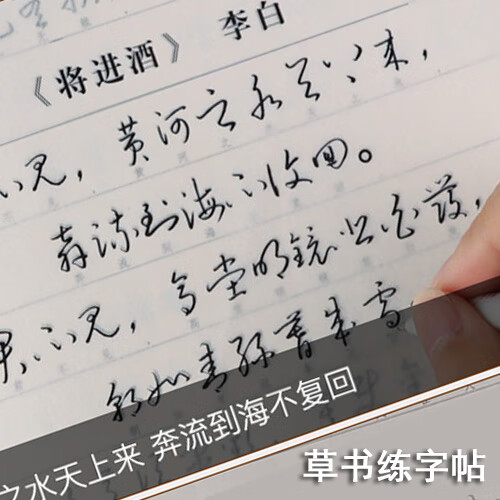 《将进酒》 李白
不见，黄河之水天上来，
奔流到海不复回。
不见，高堂明镜悲白发，
朝如青丝暮成雪
之水天上来 奔流到海不复回
草书练字帖